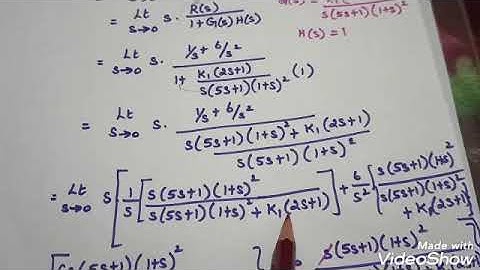 = Lt S→0 S · R(s) / 1+G(s) H(s)
S(5S+1)(1+S)²
H(s) = 1
= Lt S→0 S · 1/s + 6/s² / 1+ K₁(2S+1) / S(5S+1)(1+S)² (1)
= Lt S→0 S · 1/s + 6/s² / S(5S+1)(1+S)² + K₁(2S+1) / S(5S+1)(1+S)²
= Lt S→0 S [ 1/S [ S(5S+1)(1+S)² / S(5S+1)(1+S)² + K₁(2S+1) ] + 6/S² [ S(5S+1)(1+S)² / S(5S+1)(1+S)² + K₁(2S+1)
S(5S+1)(1+S)²
Made with
VideoShow